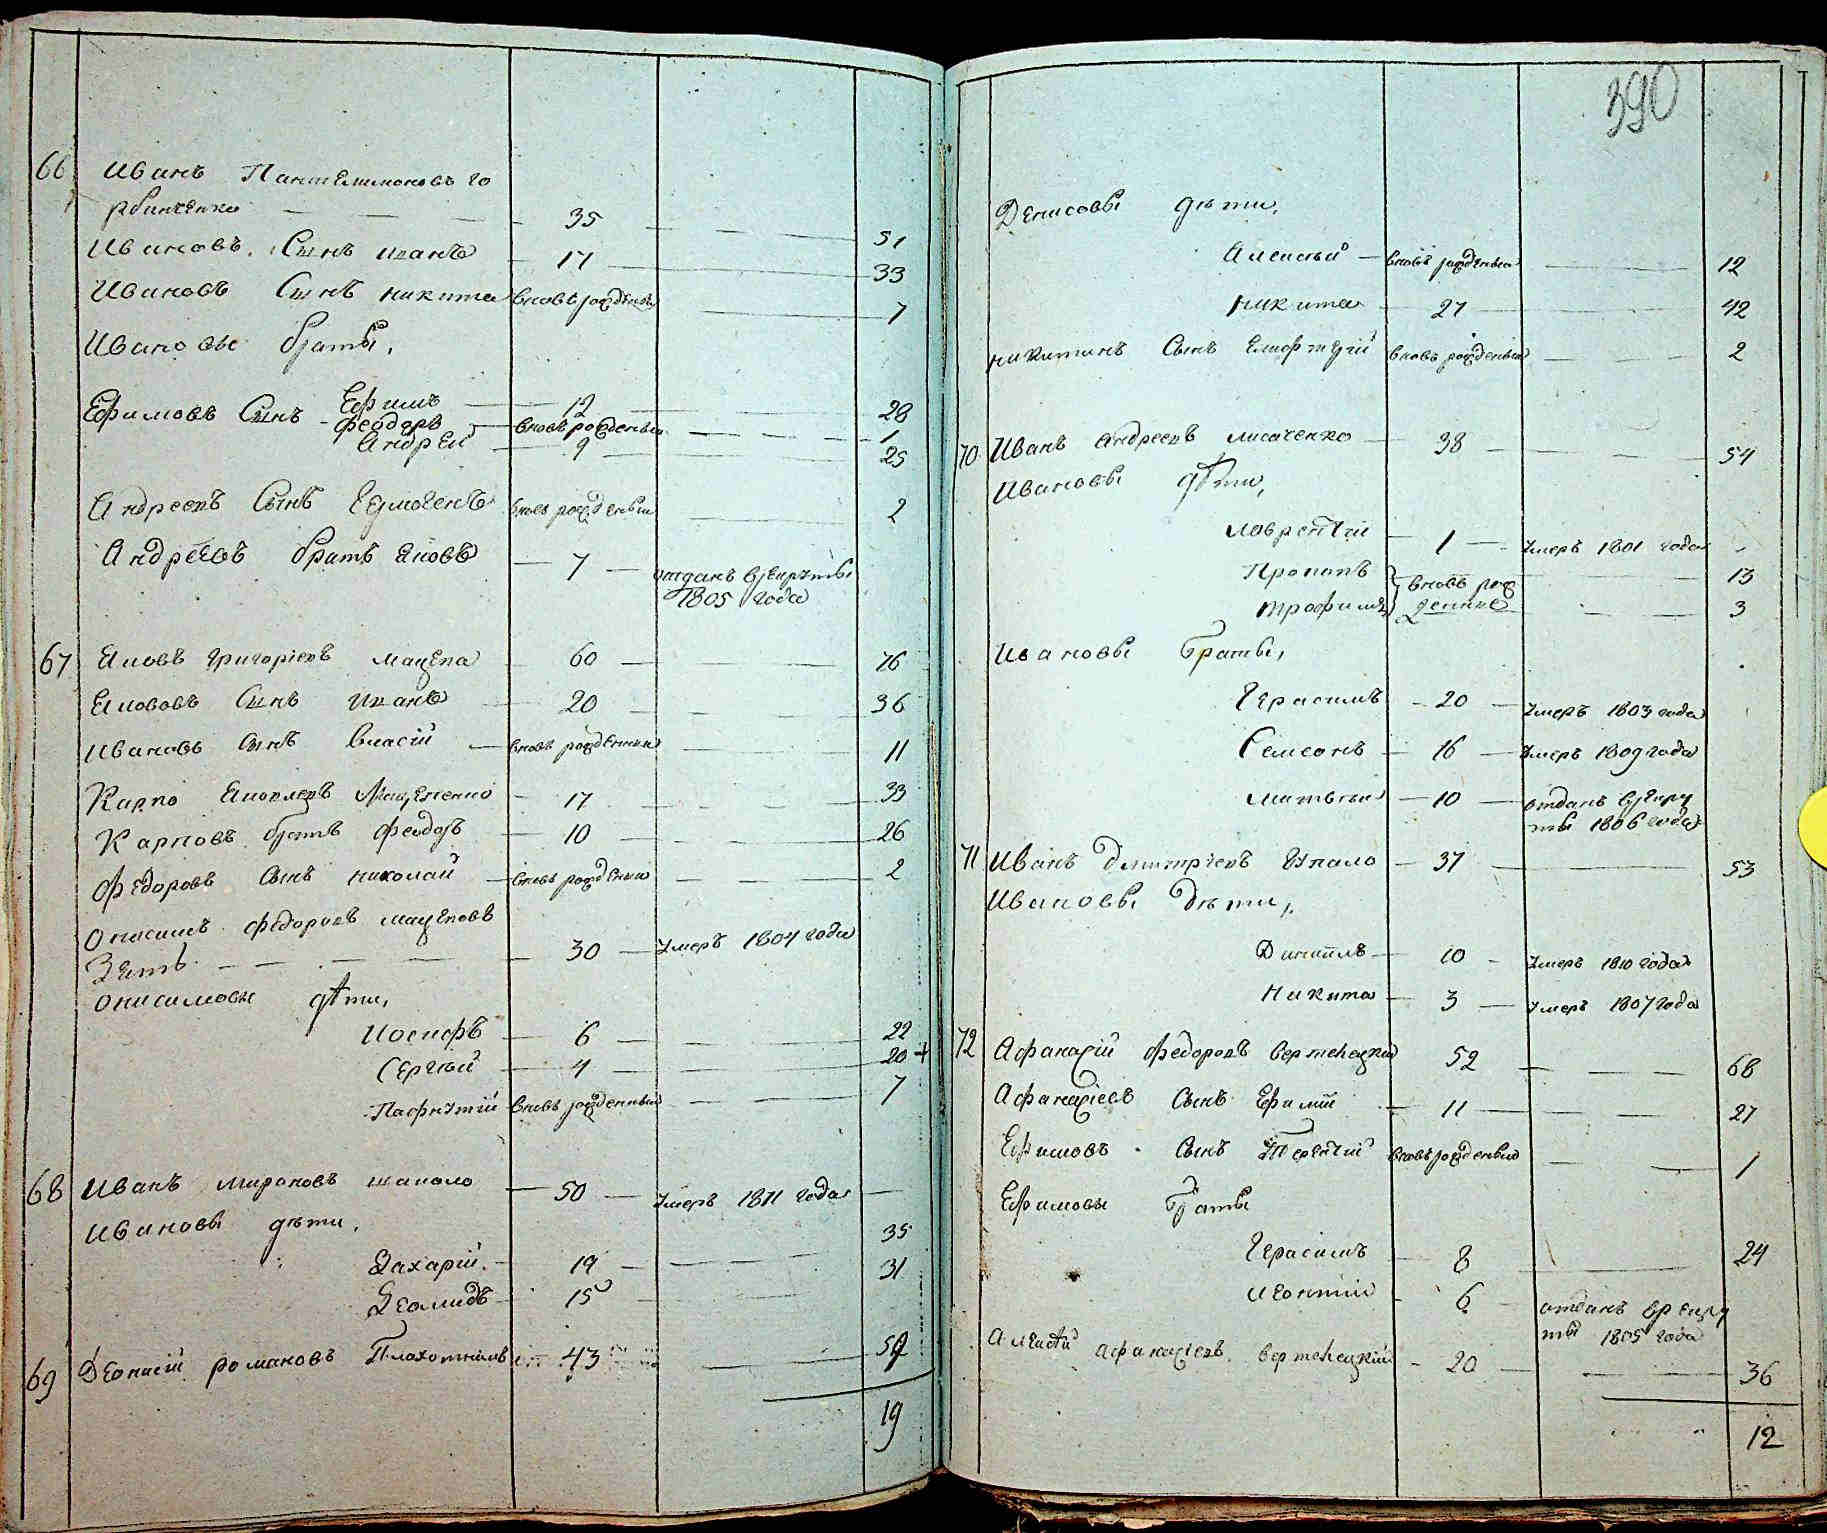 66 Иванъ Пантелимоновъ го
рбиненко — — — 35 — — — 51
Ивановъ Сынъ иванъ — 17 — — 33
Ивановъ Сынъ никита вновь рожденый — 7
Ивановы браты,
Ефимъ — 12 — — 28
Ефимовъ Сынъ феодоръ — вновь рожденый — — 1
Андрей — 9 — — 25
Андреевъ Сынъ Гермогенъ вновь рожденый — 2
Андреевъ братъ яковъ — 7 — отданъ в рекруты
1805 года
67 Яковъ григориевъ мацепа — 60 — — 76
Якововъ Сынъ иванъ — 20 — — 36
Ивановъ сынъ власій — вновь рожденный — 11
Карпо Яковлевъ Мацепенко — 17 — — 33
Карповъ братъ феодоръ — 10 — — 26
федоровъ сынъ николай — вновь рожденый — — 2
Онисимъ федоровъ мацеповъ
Зять — — — — 30 — умеръ 1804 года
онисимовы дѣти,
Иосифъ — 6 — — 22
Сергѣй — 4 — — 20 +
Пафнутій вновь рожденный — — 7
68 Иванъ мироновъ шаполо — 50 — умеръ 1811 года —
Ивановы дѣти,
35
Захарій — 19 — — 31
Деомидъ — 15 —
69 Деонисій романовъ Плахотникъ — 43 — — 59
19
390
Денисовы дѣти,
Алексѣй — вновь рожденый — 12
никита — 27 — — 42
никитинъ Сынъ Елиферій вновь рожденый — — 2
70 Иванъ андреевъ лисаченко — 38 — — 54
Ивановы дѣти,
лаврентій — 1 — умеръ 1801 года
Прокопъ — вновь рож — 13
трофимъ денные — — 3
Ивановы Браты,
Герасимъ — 20 — умеръ 1803 года
Семеонъ — 16 — умеръ 1809 года
матвѣй — 10 — отданъ в рекру
ты 1806 года
71 Иванъ димитріевъ — 37 — 53
Ивановы дѣти,
Даниилъ — 10 — умеръ 1810 года
Никита — 3 — умеръ 1807 года
72 Афанасій федоровъ вертелецкий — 52 — — 68
Афанасіевъ Сынъ Ефимъ — 11 — — 27
Ефимовъ Сынъ Терентій вновь рожденый — 1
Ефимовы Браты
Герасимъ — 8 — 24
леонтій — 6 — отданъ в рекру
ты 1805 года
Алексѣй афанасіевъ вертелецкій — 20 — — 36
12